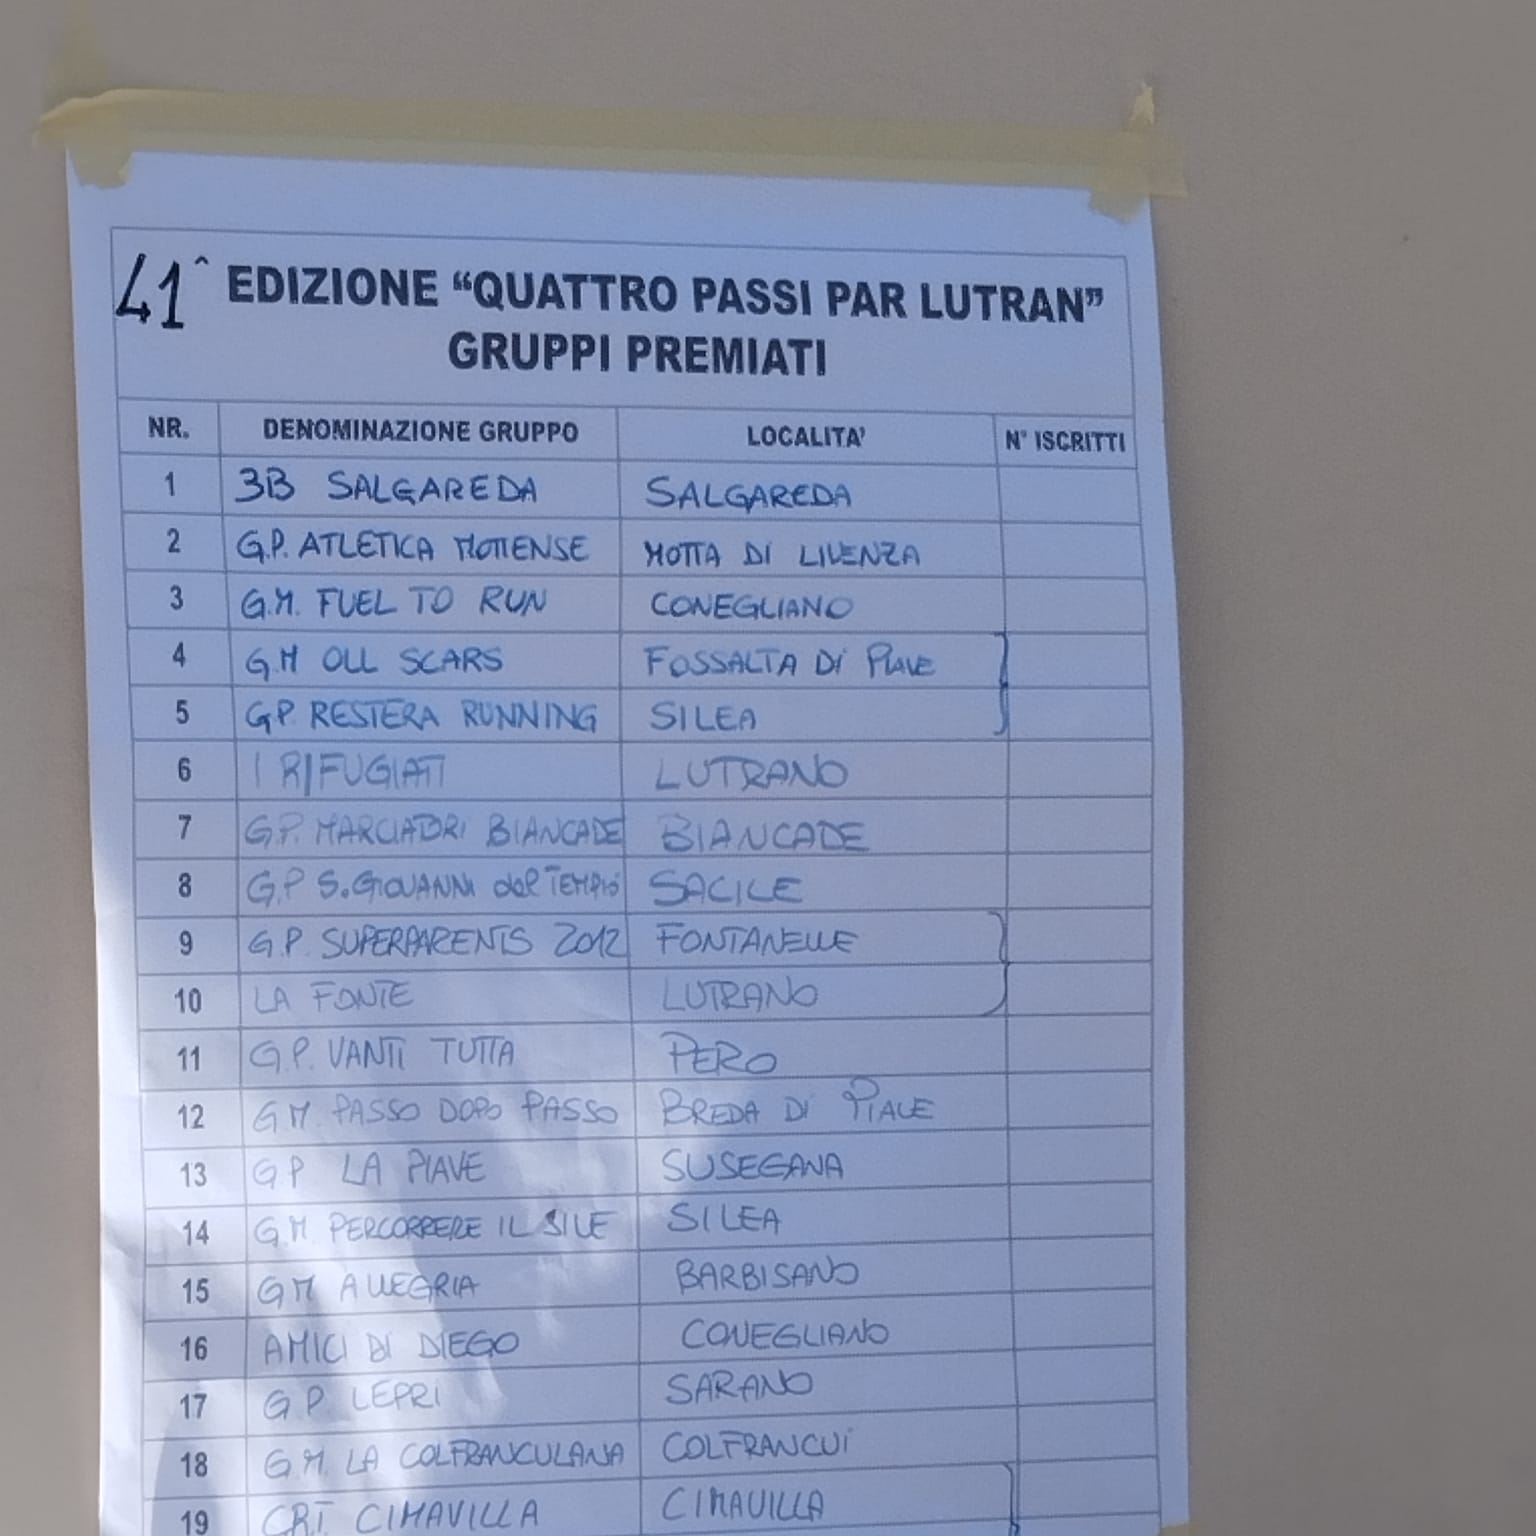 41^ EDIZIONE “QUATTRO PASSI PAR LUTRAN”
GRUPPI PREMIATI
NR. DENOMINAZIONE GRUPPO LOCALITA’ N° ISCRITTI
1 3B SALGAREDA SALGAREDA
2 G.P. ATLETICA MOTTENSE MOTTA DI LIVENZA
3 G.M. FUEL TO RUN CONEGLIANO
4 G.M OLL SCARS FOSSALTA DI PIAVE
5 G.P. RESTERA RUNNING SILEA
6 I RIFUGIATI LUTRANO
7 G.P. MARCIATORI BIANCADE BIANCADE
8 G.P S.GIOVANNI del TEMPIO SACILE
9 G.P. SUPERPARENTS 2012 FONTANELLE
10 LA FONTE LUTRANO
11 G.P. VANTI TUTTA PERO
12 G.M. PASSO DOPO PASSO BREDA DI PIAVE
13 G.P LA PIAVE SUSEGANA
14 G.M. PERCORRERE IL SILE SILEA
15 GM ALLEGRIA BARBISANO
16 AMICI DI DIEGO CONEGLIANO
17 G.P. LEPRI SARANO
18 G.M. LA COLFRANCULANA COLFRANCUI
19 CRT. CIMAVILLA CIMAVILLA